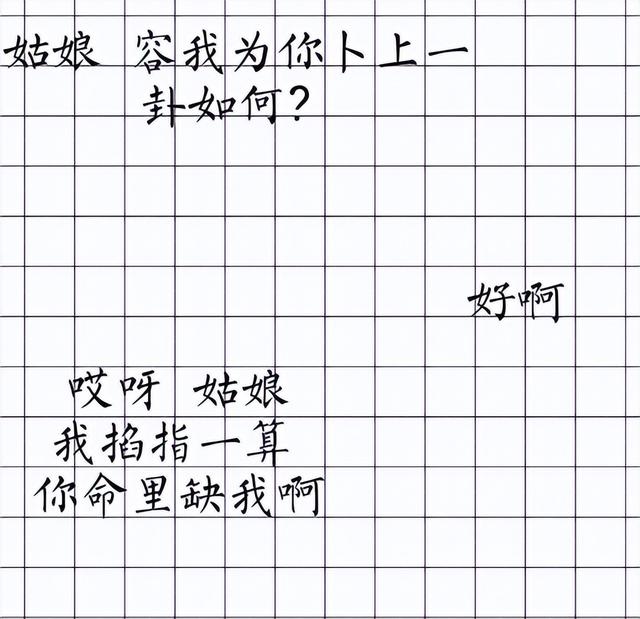 姑娘 容我为你卜上一
卦如何?
好啊
哎呀 姑娘
我掐指一算
你命里缺我啊